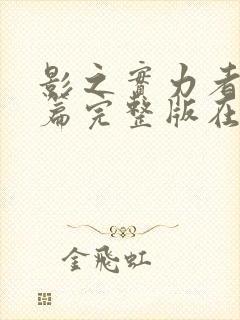 影之實力者
篇完整版在
金飛虹